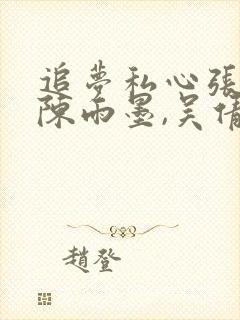 追夢私心張
陳雨墨,吴倩
趙登